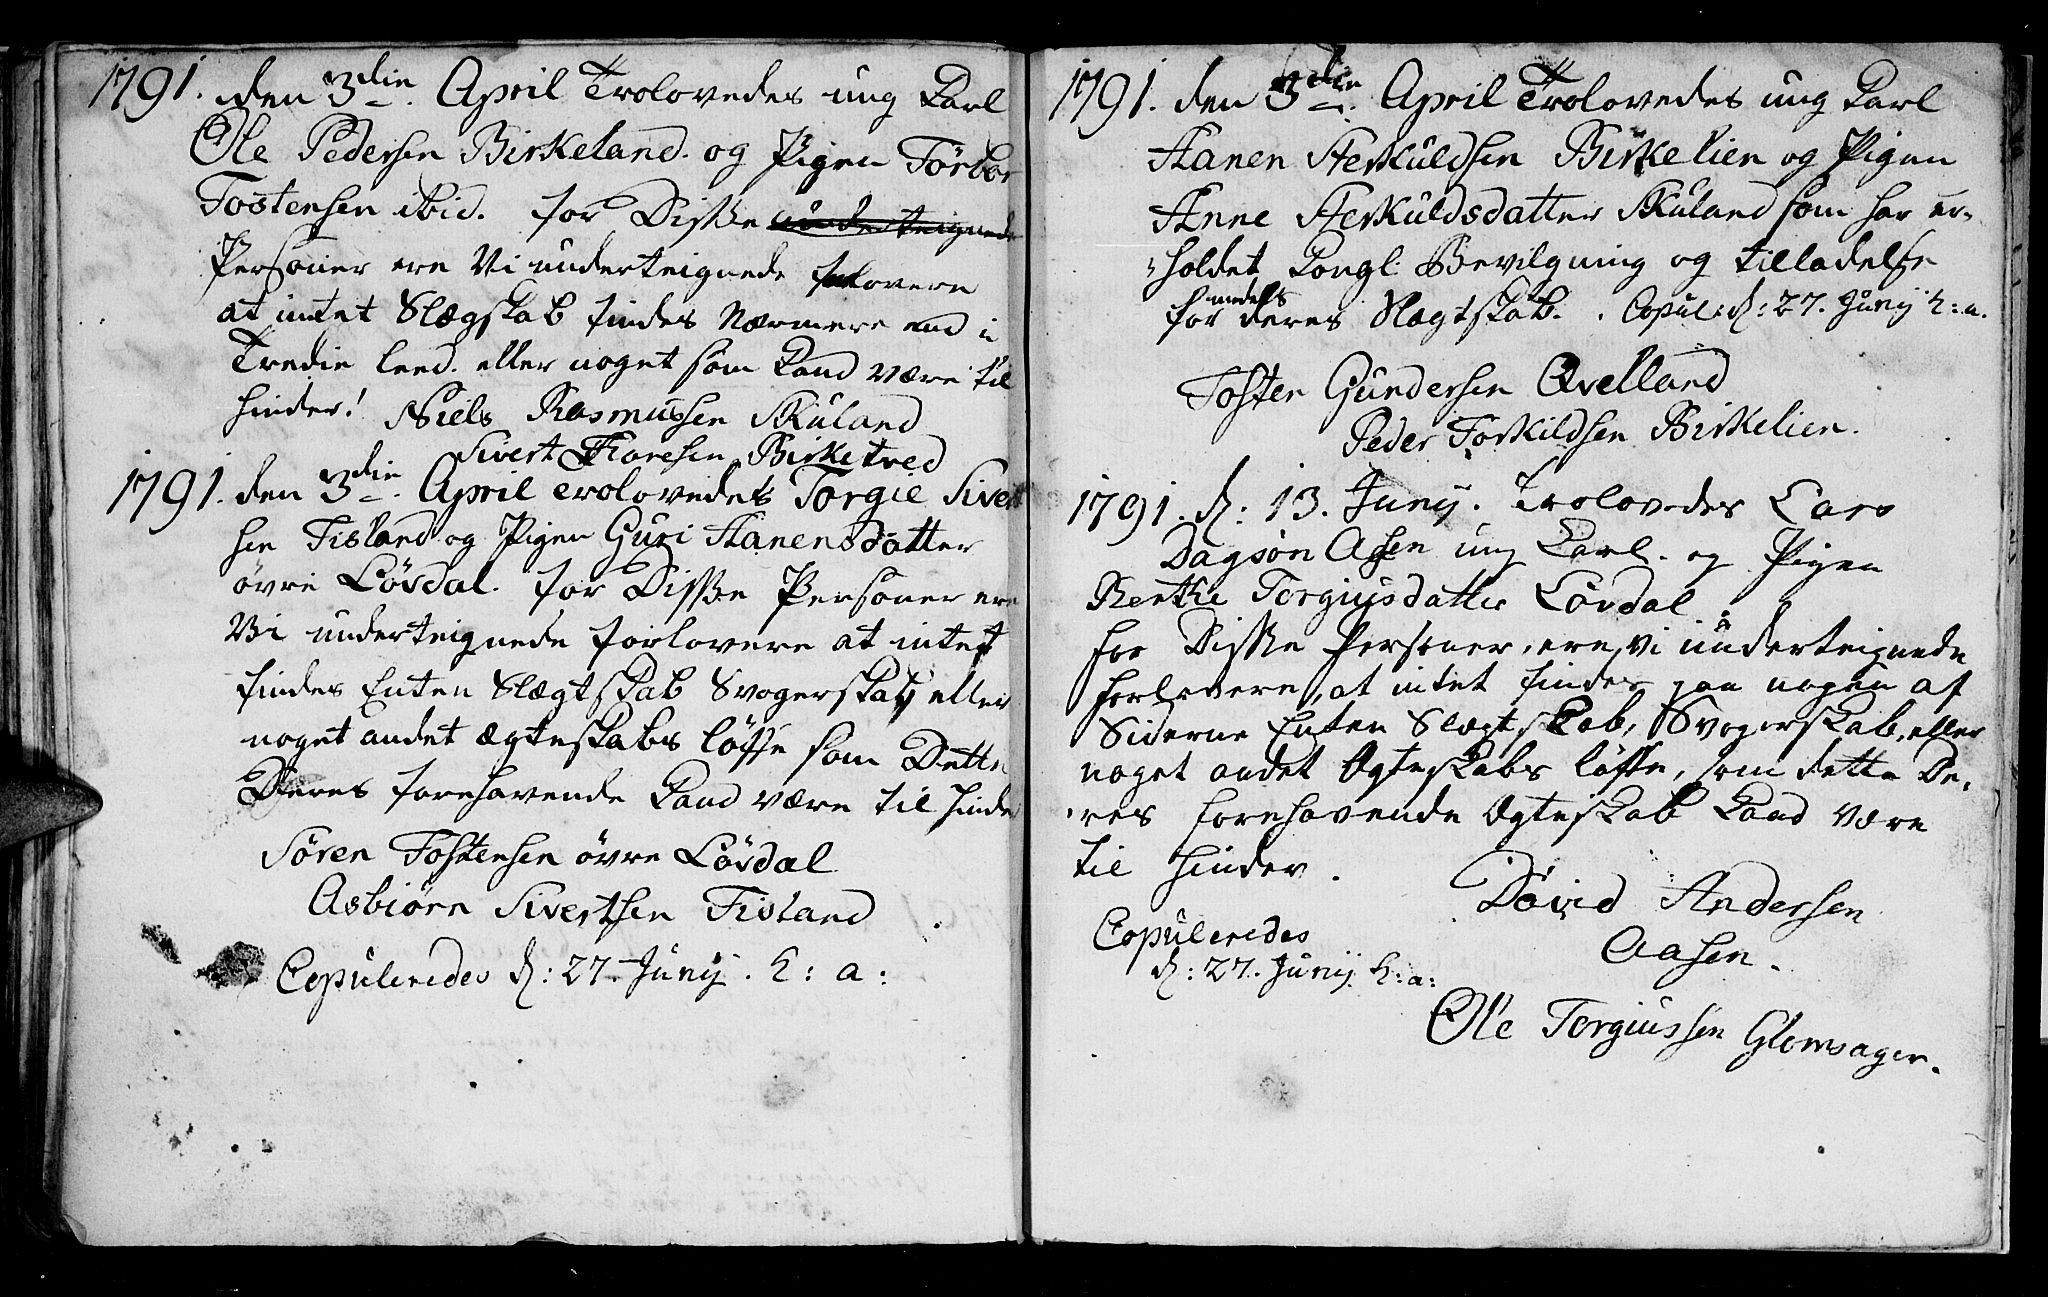 1791. den 3die April Trolovedes ung Karl
Ole Pedersen Birkeland. og Pigen Törbor
Tostensen ibid. for Disße underteignede
Personer ere Vi underteignede forlovere
at intet Slægskab findes Nærmere end i
Tredie leed. eller noget som Kand være til
hinder! Niels Rasmussen Skuland
Sivert Haresen Birketved
1791. den 3die April trolovedes Torgie Sivert
sen Fisland og Pigen Guri Hanensdatter
övre Lövdal. for Disße Personer ere
Vi underteignede forlovere at intet
findes Enten Slægtskab Svogerskab eller
noget andet ægteskabs löfte som Dette
Deres forehavende Kand være til hinder
Sören Tostensen övre Lövdal
Asbiörn Sivertsen Fisland
Copuleredes d: 27. Junij. h: a:
1791. den 3die April Trolovedes ung Karl
Hanen Herkuldsen Birkelien og Pigen
Anne Herkuldsdatter Skuland som har er-
holdet Kongl. Bevilgning og tilladelse
for deres Slægtskab. Copul: d: 27. Junij h: a.
Tosten Gundersen Qvelland
Peder Torkildsen Birkelien.
1791. d: 13. Junij. Trolovedes Lars
Dagsön Asen ung Karl. og Pigen
Berthe Torgiusdatter Lövdal.
for Disße Personer, ere vi underteignede
forlovere, at intet findes paa nogen af
Siderne Enten Slægtskab, Svogerskab, eller
noget andet Ægteskabs löfte, som dette De-
res forehavende Ægteskab Kand være
til hinder.
David Andersen
Aasen.
Copuleredes
d: 27. Junij. h: a:
Ole Torgiussen Glomsager.